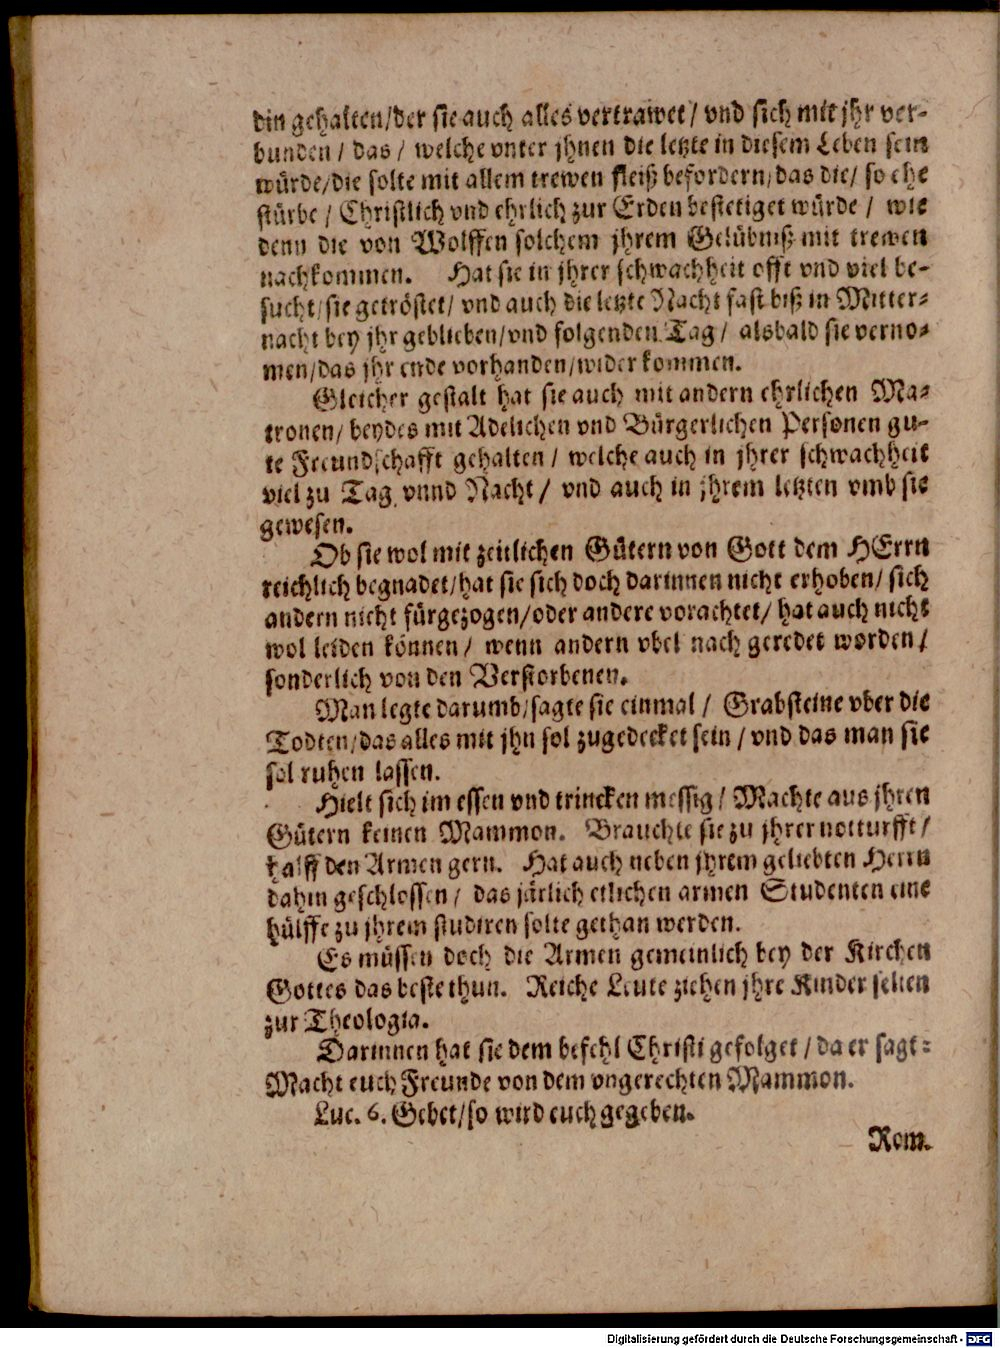 din gehalten/der sie auch alles vertrawet/ vnd sich mit jhr ver-
bunden / das / welche vnter jhnen die letzte in diesem Leben sein
würde/die solte mit allem trewen fleiß befordern/das die/ so ehe
stürbe / Christlich vnd ehrlich zur Erden bestetiget würde / wie
denn die von Wolffen solchem jhrem Gelübniß mit trewen
nachkommen. Hat sie in jhrer schwachheit offt vnd viel be-
sucht/sie getröstet/ vnd auch die letzte Nacht fast biß in Mitter-
nacht bey jhr geblieben/vnd folgenden Tag/ alsbald sie verno-
men/das jhr ende vorhanden/wider kommen.
Gleicher gestalt hat sie auch mit andern ehrlichen Ma-
tronen/ beydes mit Adelichen vnd Bürgerlichen Personen gu-
te Freundschafft gehalten / welche auch in jhrer schwachheit
viel zu Tag vnnd Nacht / vnd auch in jhrem letzten vmb sie
gewesen.
Ob sie wol mit zeitlichen Gütern von Gott dem HErrn
reichlich begnadet/hat sie sich doch darinnen nicht erhoben/ sich
andern nicht fürgezogen/oder andere vorachtet/ hat auch nicht
wol leiden können / wenn andern vbel nach geredet worden /
sonderlich von den Verstorbenen.
Man legte darumb/sagte sie einmal / Grabsteine vber die
Todten/das alles mit jhn sol zugedecket sein / vnd das man sie
sol ruhen lassen.
Hielt sich im essen vnd trincken messig / Machte aus jhren
Gütern keinen Mammon. Brauchte sie zu jhrer notturfft /
halff den Armen gern. Hat auch neben jhrem geliebten Herrn
dahin geschlossen / das järlich etlichen armen Studenten eine
hülffe zu jhrem studiren solte gethan werden.
Es müssen doch die Armen gemeinlich bey der Kirchen
Gottes das beste thun. Reiche Leute ziehen jhre Kinder selten
zur Theologia.
Darinnen hat sie dem befehl Christi gefolget / da er sagt:
Macht euch Freunde von dem vngerechten Mammon.
Luc. 6. Gebet/so wird euch gegeben.
Rom.
Digitalisierung gefördert durch die Deutsche Forschungsgemeinschaft - DFG